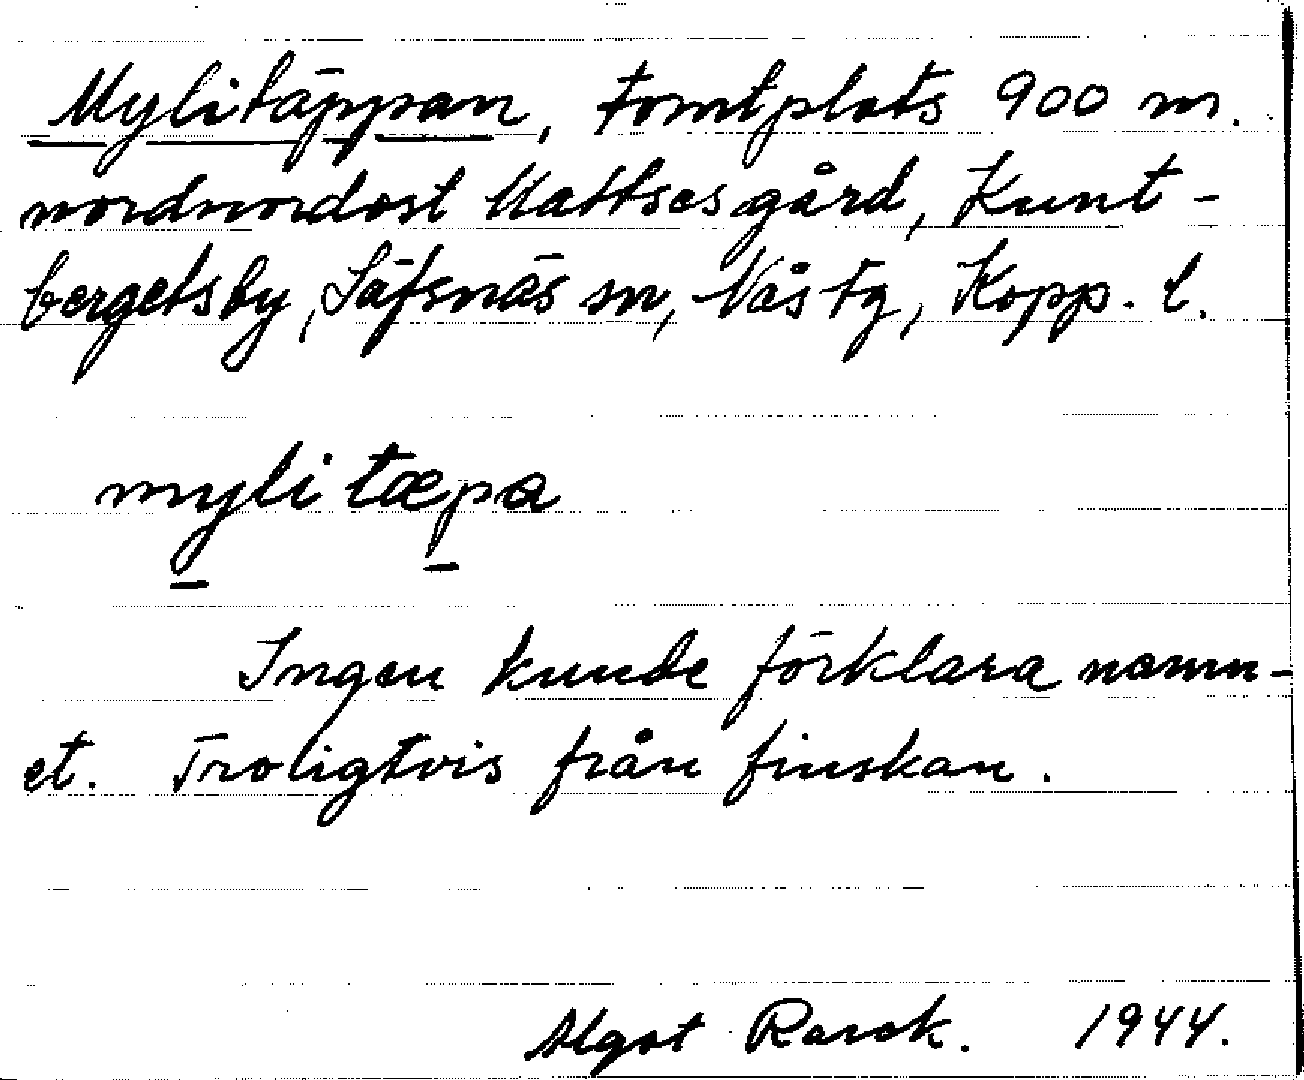 Mylitäppan, tomtplats 900 m.
nordnordost Mattses gård, Kunt-
bergetsby, Säfsnäs sn, Nås tg, Kopp. l.
myli tæpa
Ingen kunde förklara namn-
et. Troligtvis från finskan.
Algot Rarek. 1944.